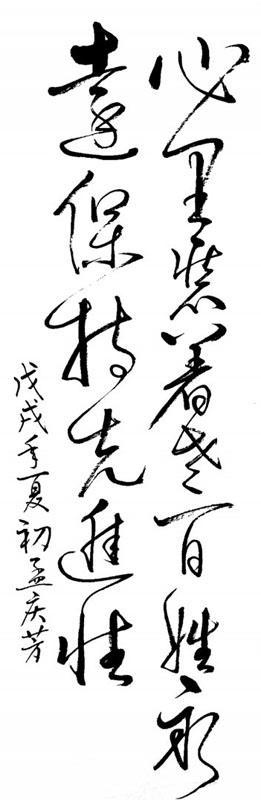 心里装着老百姓永
远保持先进性
戊戌年夏初孟庆芳